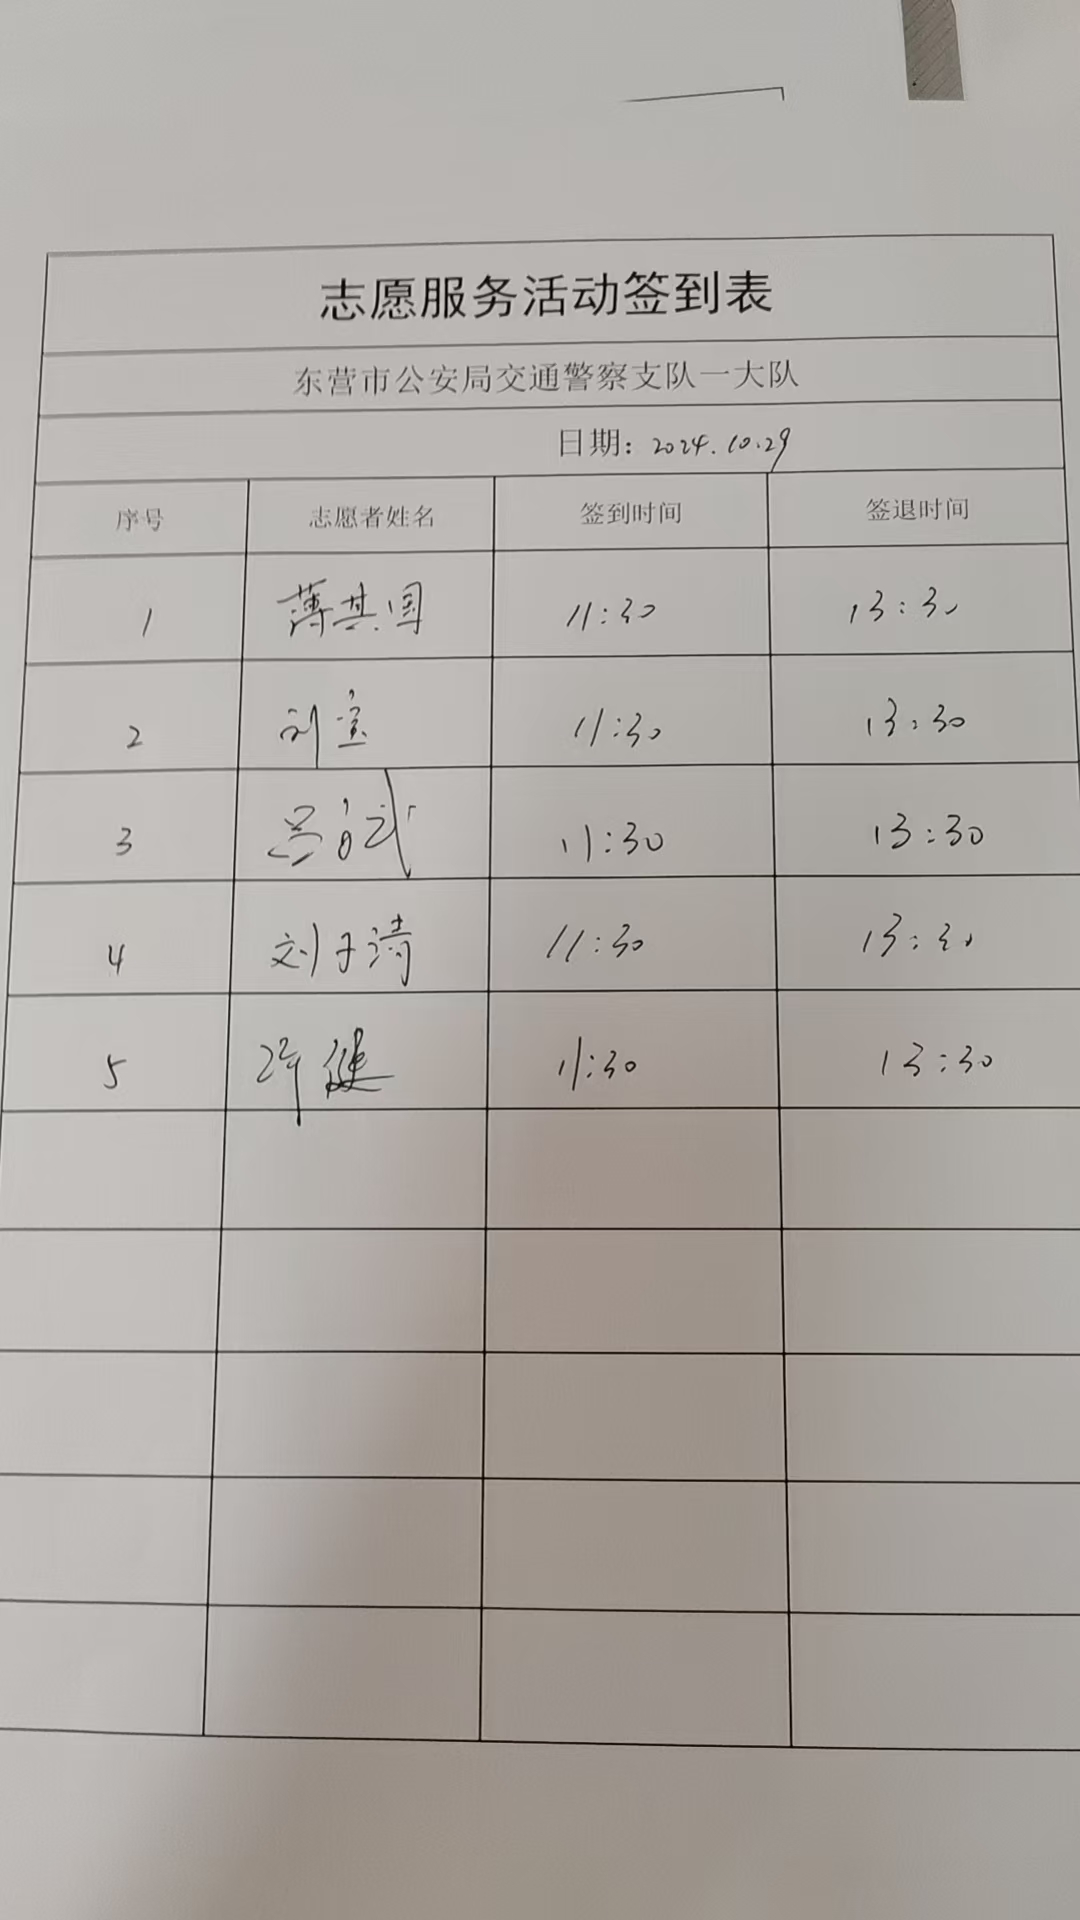 志愿服务活动签到表
东营市公安局交通警察支队一大队
日期：2024.10.29
序号 志愿者姓名 签到时间 签退时间
1 薄其国 11:30 13:30
2 刘宝 11:30 13:30
3 吕 武 11:30 13:30
4 刘子涛 11:30 13:30
5 健 11:30 13:30